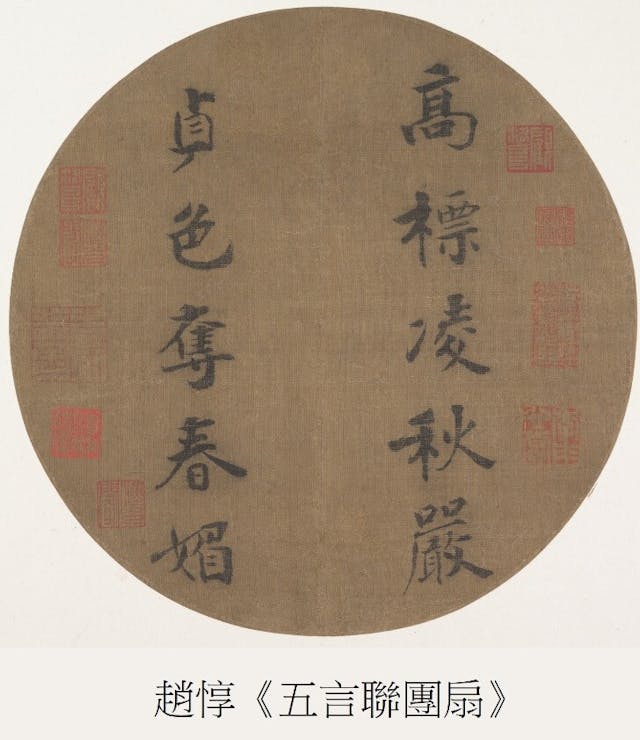 高標凌秋嚴
貞色奪春媚
趙惇《五言聯團扇》